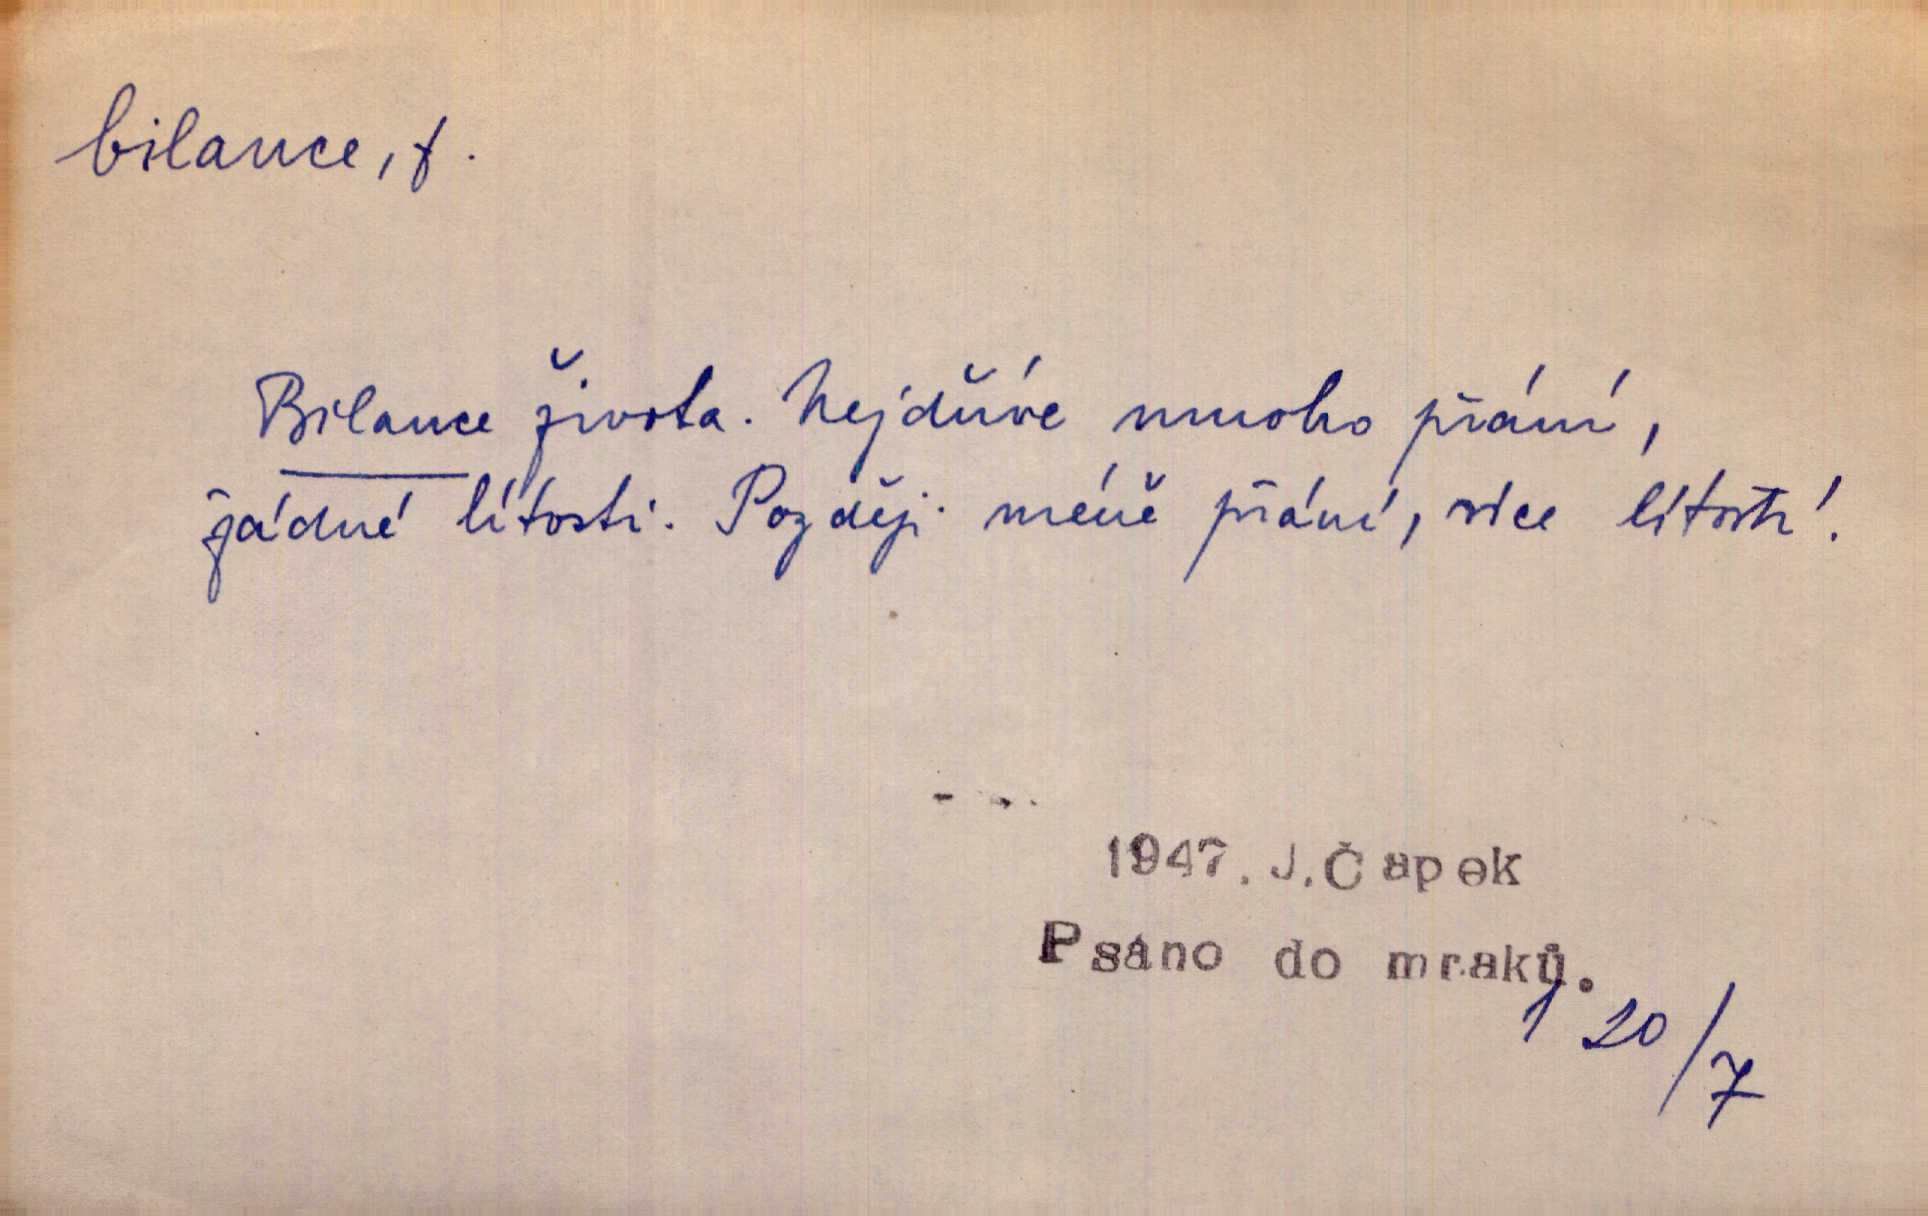 bilance, f.
Bilance života. Nejdříve mnoho přání,
žádné lítosti. Později méně přání, více lítostí.
1947. J. Čapek
Psáno do mraků.
1 20/7